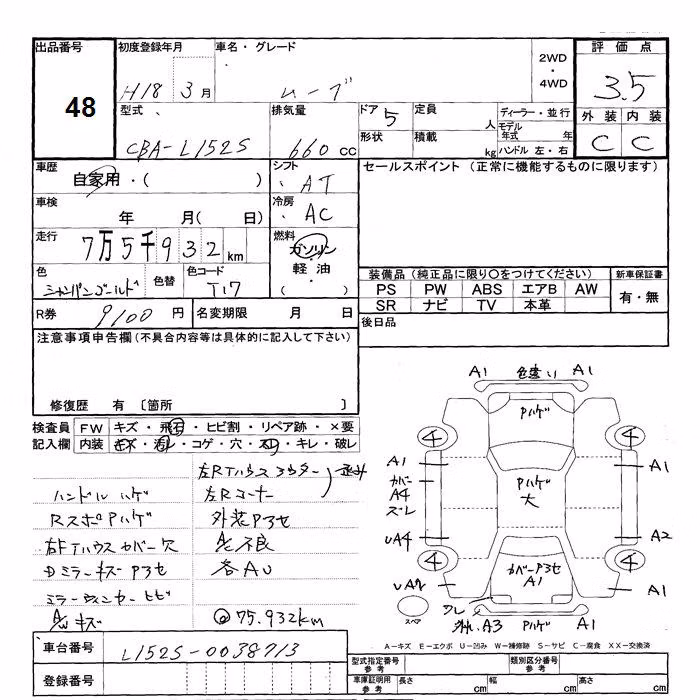 出品番号
48
初度登録年月
H18 3月
車名・グレード
ムーブ
2WD
・
4WD
評価点
3.5
外装 内装
C C
型式
CBA-L152S
排気量
660 cc
ドア 5
定員 人
形状
積載 kg
ディーラー・並行
モデル年式 年
ハンドル 左・右
車歴
自家用・( )
シフト
AT
セールスポイント (正常に機能するものに限ります)
車検
年 月( 日)
冷房
AC
走行
7万5千932km
燃料
ガソリン
・
軽油
( )
色
シャンパンゴールド
色替
色コード
T17
装備品 (純正品に限り○をつけてください)
PS PW ABS エアB AW
SR ナビ TV 本革
新車保証書
有・無
R券 9100 円
名変期限 月 日
後日品
注意事項申告欄(不具合内容等は具体的に記入して下さい)
修復歴 有 〔箇所 〕
検査員記入欄
FW キズ・飛石・ヒビ割・リペア跡・×要
内装 キズ・汚れ・コゲ・穴・スレ・キレ・破レ
左RTハウス アウター
ハンドルハゲ
左Rコーナー
RスポPハゲ
外装P3セ
右FTハウスカバー穴
不良
DミラーキズP3セ
各AU
ミラーウィンカーヒビ
A/Wキズ
◎75.932km
A1 色違い A1
Pハゲ
4 4
A1
カバー
A4
ズレ
Pハゲ
大
A1
UA4
A2
4 4
カバーP3セ
A1
UA4
A1
ワレ
スペア
外れ.A3 Pハゲ A1
A－キズ E－エクボ U－凹み W－補修跡 S－サビ C－腐食 XX－交換済
車台番号
L152S-0038713
登録番号
型式指定番号
参考
類別区分番号
参考
車庫証明用
参考
長さ cm
幅 cm
高さ cm